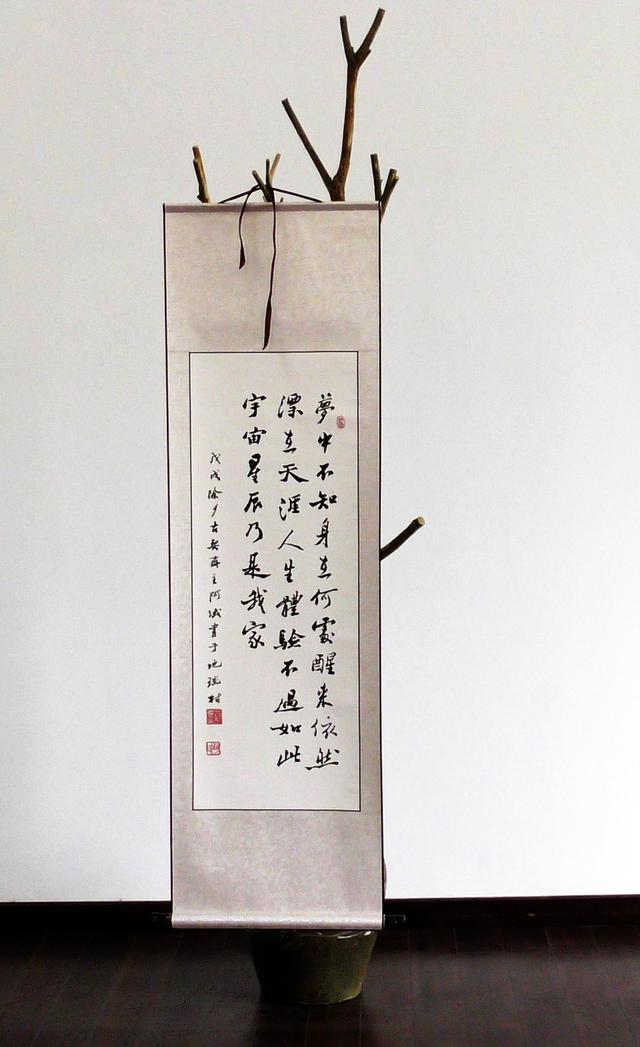 夢中不知身在何處醒来依然
漂在天涯人生體驗不過如此
宇宙星辰乃是我家
戊戌除夕古 主阿 书于地 村